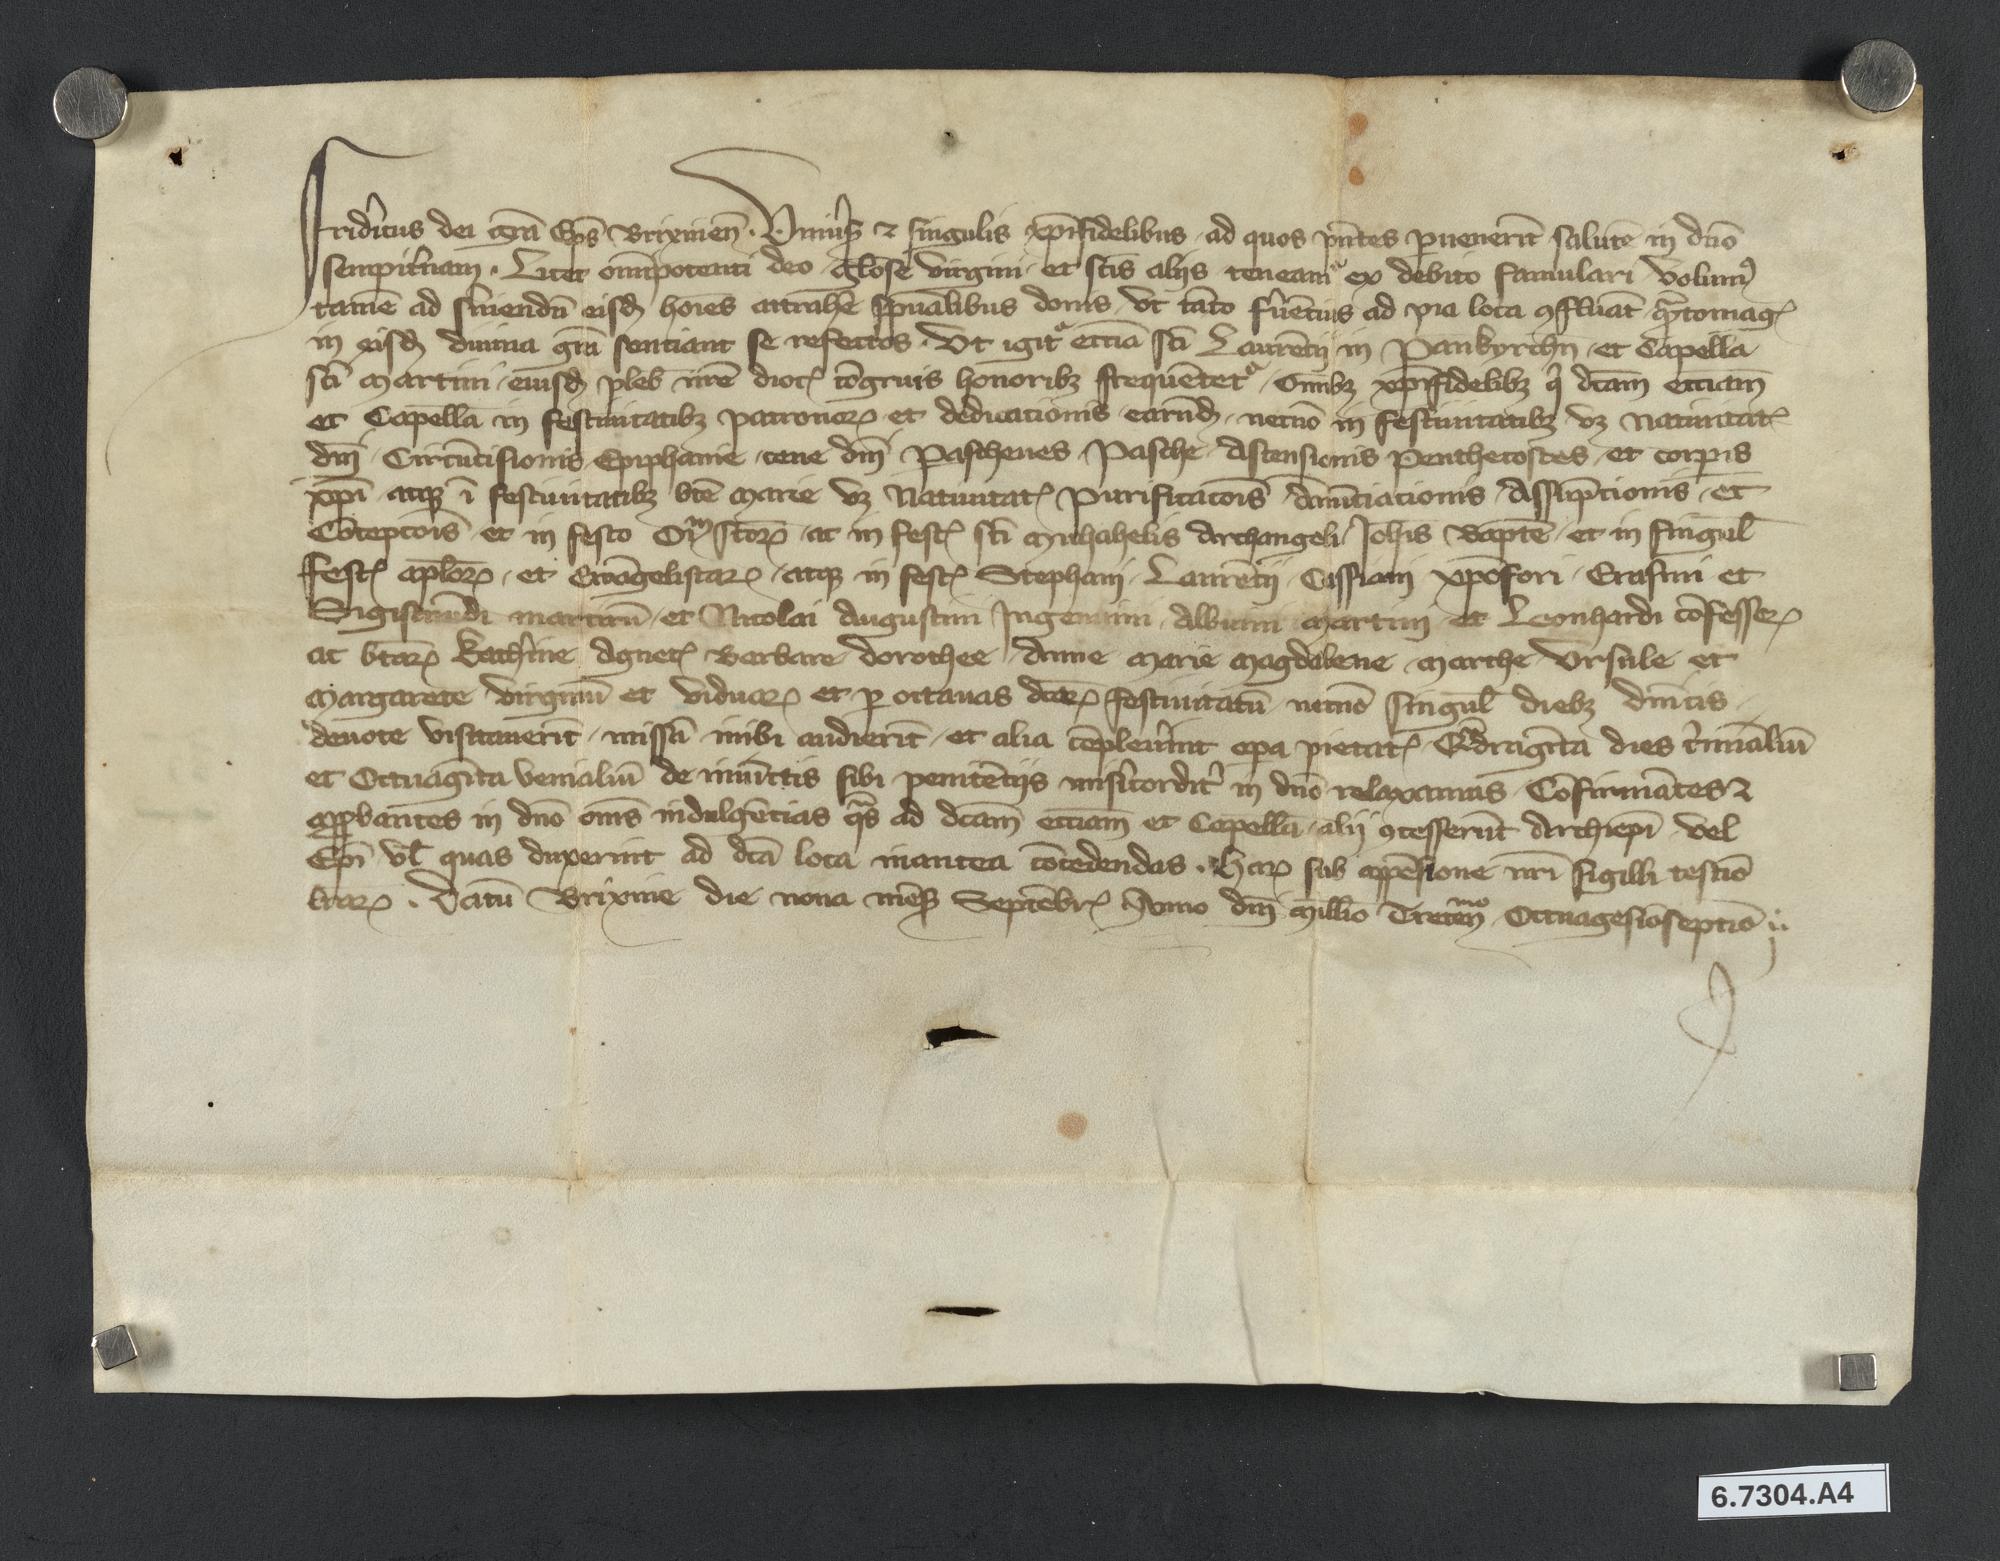 Fridicus dei gra Eps Brixinen . Uniuis et singulis xpifidelibus ad quos pntes puenerit salute in dno
sempitnam . Licet omipotenti deo glose virgini et scis alijs teneam ex debito famulari volum
tame ad suiendu eisd hoies attrahe spualibus donis vt tato fuecius ad pia loca gfluat qtomag
in eisd diuina gra senciant se refectos . Vt igit eccia sci Laurecij in Pankyrchn et Capella
sci Martini eiusd pleb nre dioc cogruis honoribz frequetet Omibz xpifidelibz q dcam ecciam
et Capella in festiuitatibz patronor et dedicacionis earund necno in festiuitatibz vz Natiuitat
dni Circucisionis Epiphanie cene dni Pascheues Pasche Ascensionis Penthecostes et corpis
xpi atqz i festiuitatibz bte Marie vz Natiuitat Purificacois Anuciacionis Assupcionis et
Cocepcois et in festo Oim scor ac in fest sci Michahelis Archangeli Johis Bapte et in singul
fest aplor et Ewagelistar atqz in fest Stephani Laurecij Cassiani xpofori Erasmi et
Sigismudi martiru et Nicolai Augustini Ingenuini Albuini Martini et Leonhardi cofessor
ac btar Kathine Agnet Barbare dorothee Anne Marie Magdalene Marthe Vrsule et
Margarete virginu et viduar et p octauas dcar festiuitatu necno singul diebz dnicis
deuote visitauerit missa inibi audierit et alia copleuint opa pietat Qdraginta dies cimaliu
et Octuaginta venialiu de iniuctis sibi penitecijs misicordit in dno relaxamus Cofirmates et
approbantes in dno oms indulgecias qs ad dcam ecciam et Capella alij gcesserut Archiepi vel
Epi vl quas duxerint ad dca loca inantea cocedendas . Har sub appesione nri sigilli testio
lrar . Datu Brixine die nona mes Septebr Anno dni Millio Trecen mo Octuagesioseptio
6.7304.A4